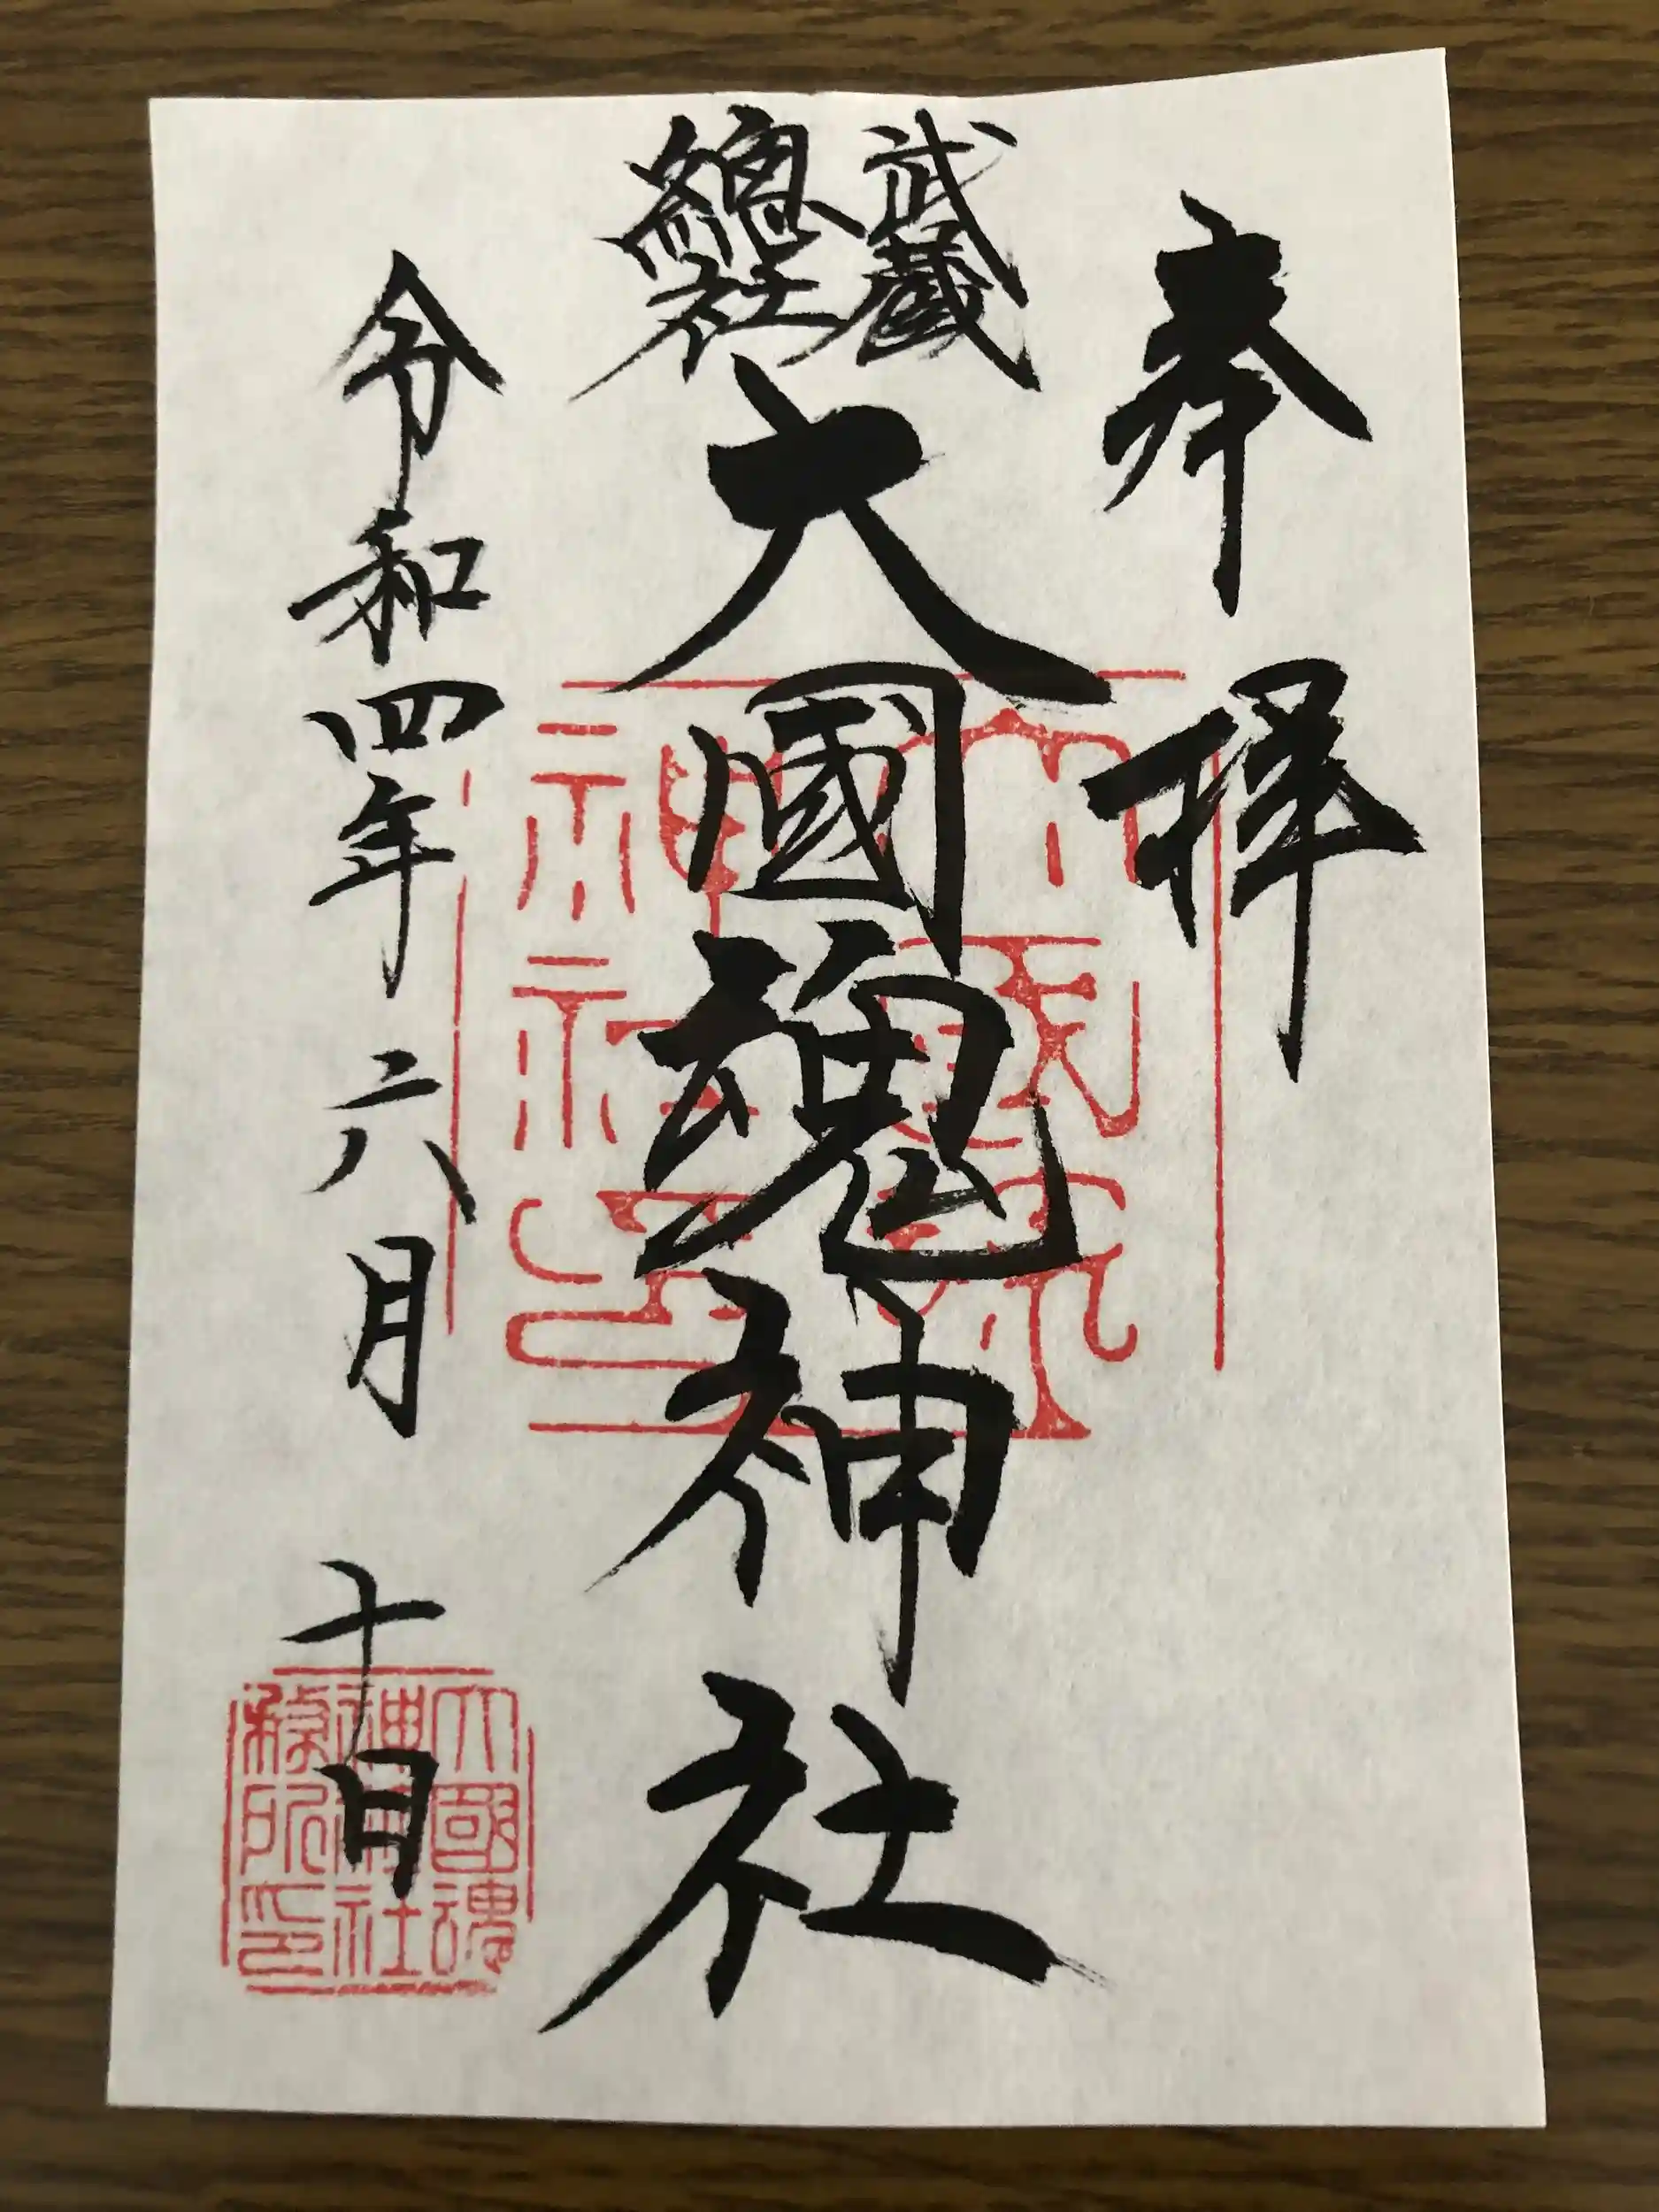 奉拝
武蔵
總社
大國魂神社
令和四年六月十日
大國魂
神社印
大國魂
神社
所印